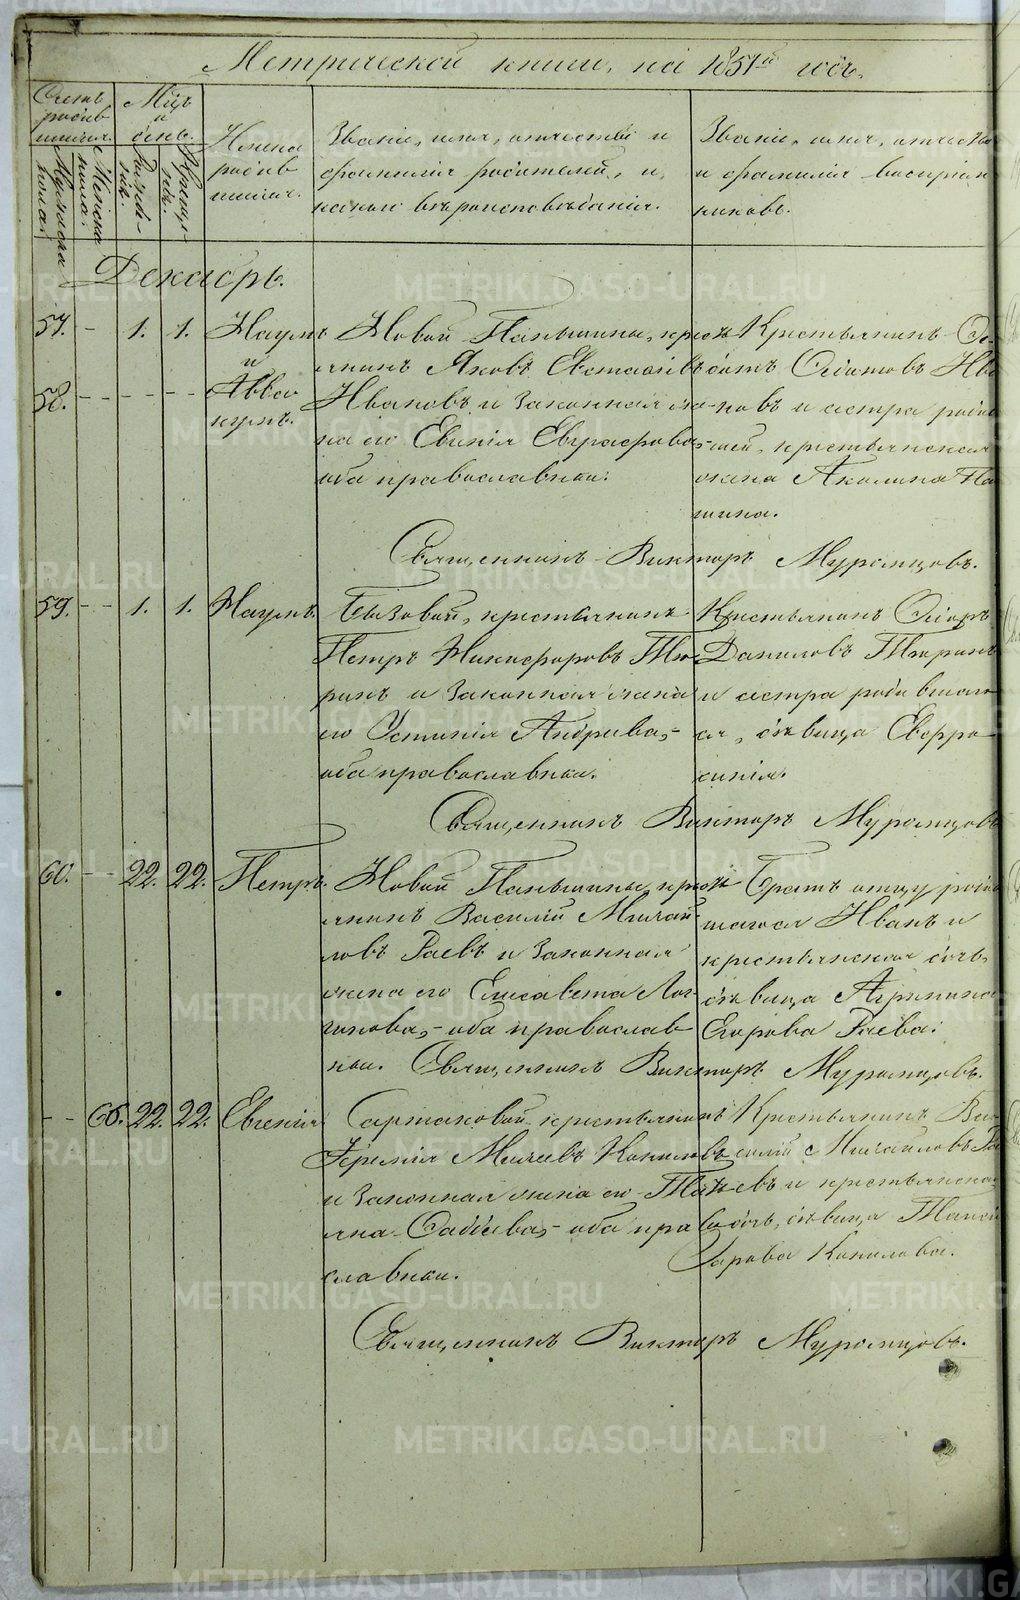 Метрической книги, на 1857й годъ.
Счетъ родив шихся.
Мужеска пола.
Женска пола.
Мѣцъ и день.
Рожде- нія.
Креще- нія.
Имена родив шихся.
Званіе, имя, отчество и
фамилія родителей, и
какого вѣроисповѣданія.
Званіе, имя, отчество
и фамилія воспріем
никовъ.
Декабрь.
57. - 1. 1. Наумъ
и
58. - - - - - Авва
кумъ.
Новой Паньшины, кресть
янинъ Яковъ Евстафіевъ
Ивановъ и законная же-
на его Евгенія Евграфова,-
оба православные.
Крестьянинъ
Ива
новъ и сестра родив
шей, крестьянская
жена Акилина Па
шина.
Священникъ Викторъ Муромцовъ.
59. - - 1. 1. Наумъ.
Бызовой, крестьянинъ
Петръ Никифоровъ Тю-
ринъ и законная жена
его Устинія Андреева,-
оба православные.
Крестьянинъ Ѳедоръ
Даниловъ Тюринъ
и сестра родившаго
ся, дѣвица Евфро
синія.
Священникъ Викторъ Муромцовъ
60. - - 22. 22. Петръ.
Новой Паньшины, кресть
янинъ Василій Михай
ловъ Раевъ и законная
жена его Елисавета Лог-
гинова,- оба православ
ные.
Братъ отцу родив
шагося Иванъ и
крестьянская дочь,
дѣвица Агрипина
Егорова Раева.
Священникъ Викторъ Муромцовъ.
- - 66. 22. 22. Евгенія.
Сартаковой крестьянинъ
Іеремія Копыловъ
и законная жена его Тать
яна Савв,- оба право
славные.
Крестьянинъ Ва
силій Михайловъ Ра
евъ и крестьянская
дочь, дѣвица
Копылова.
Священникъ Викторъ Муромцовъ.
METRIKI.GASO-URAL.RU